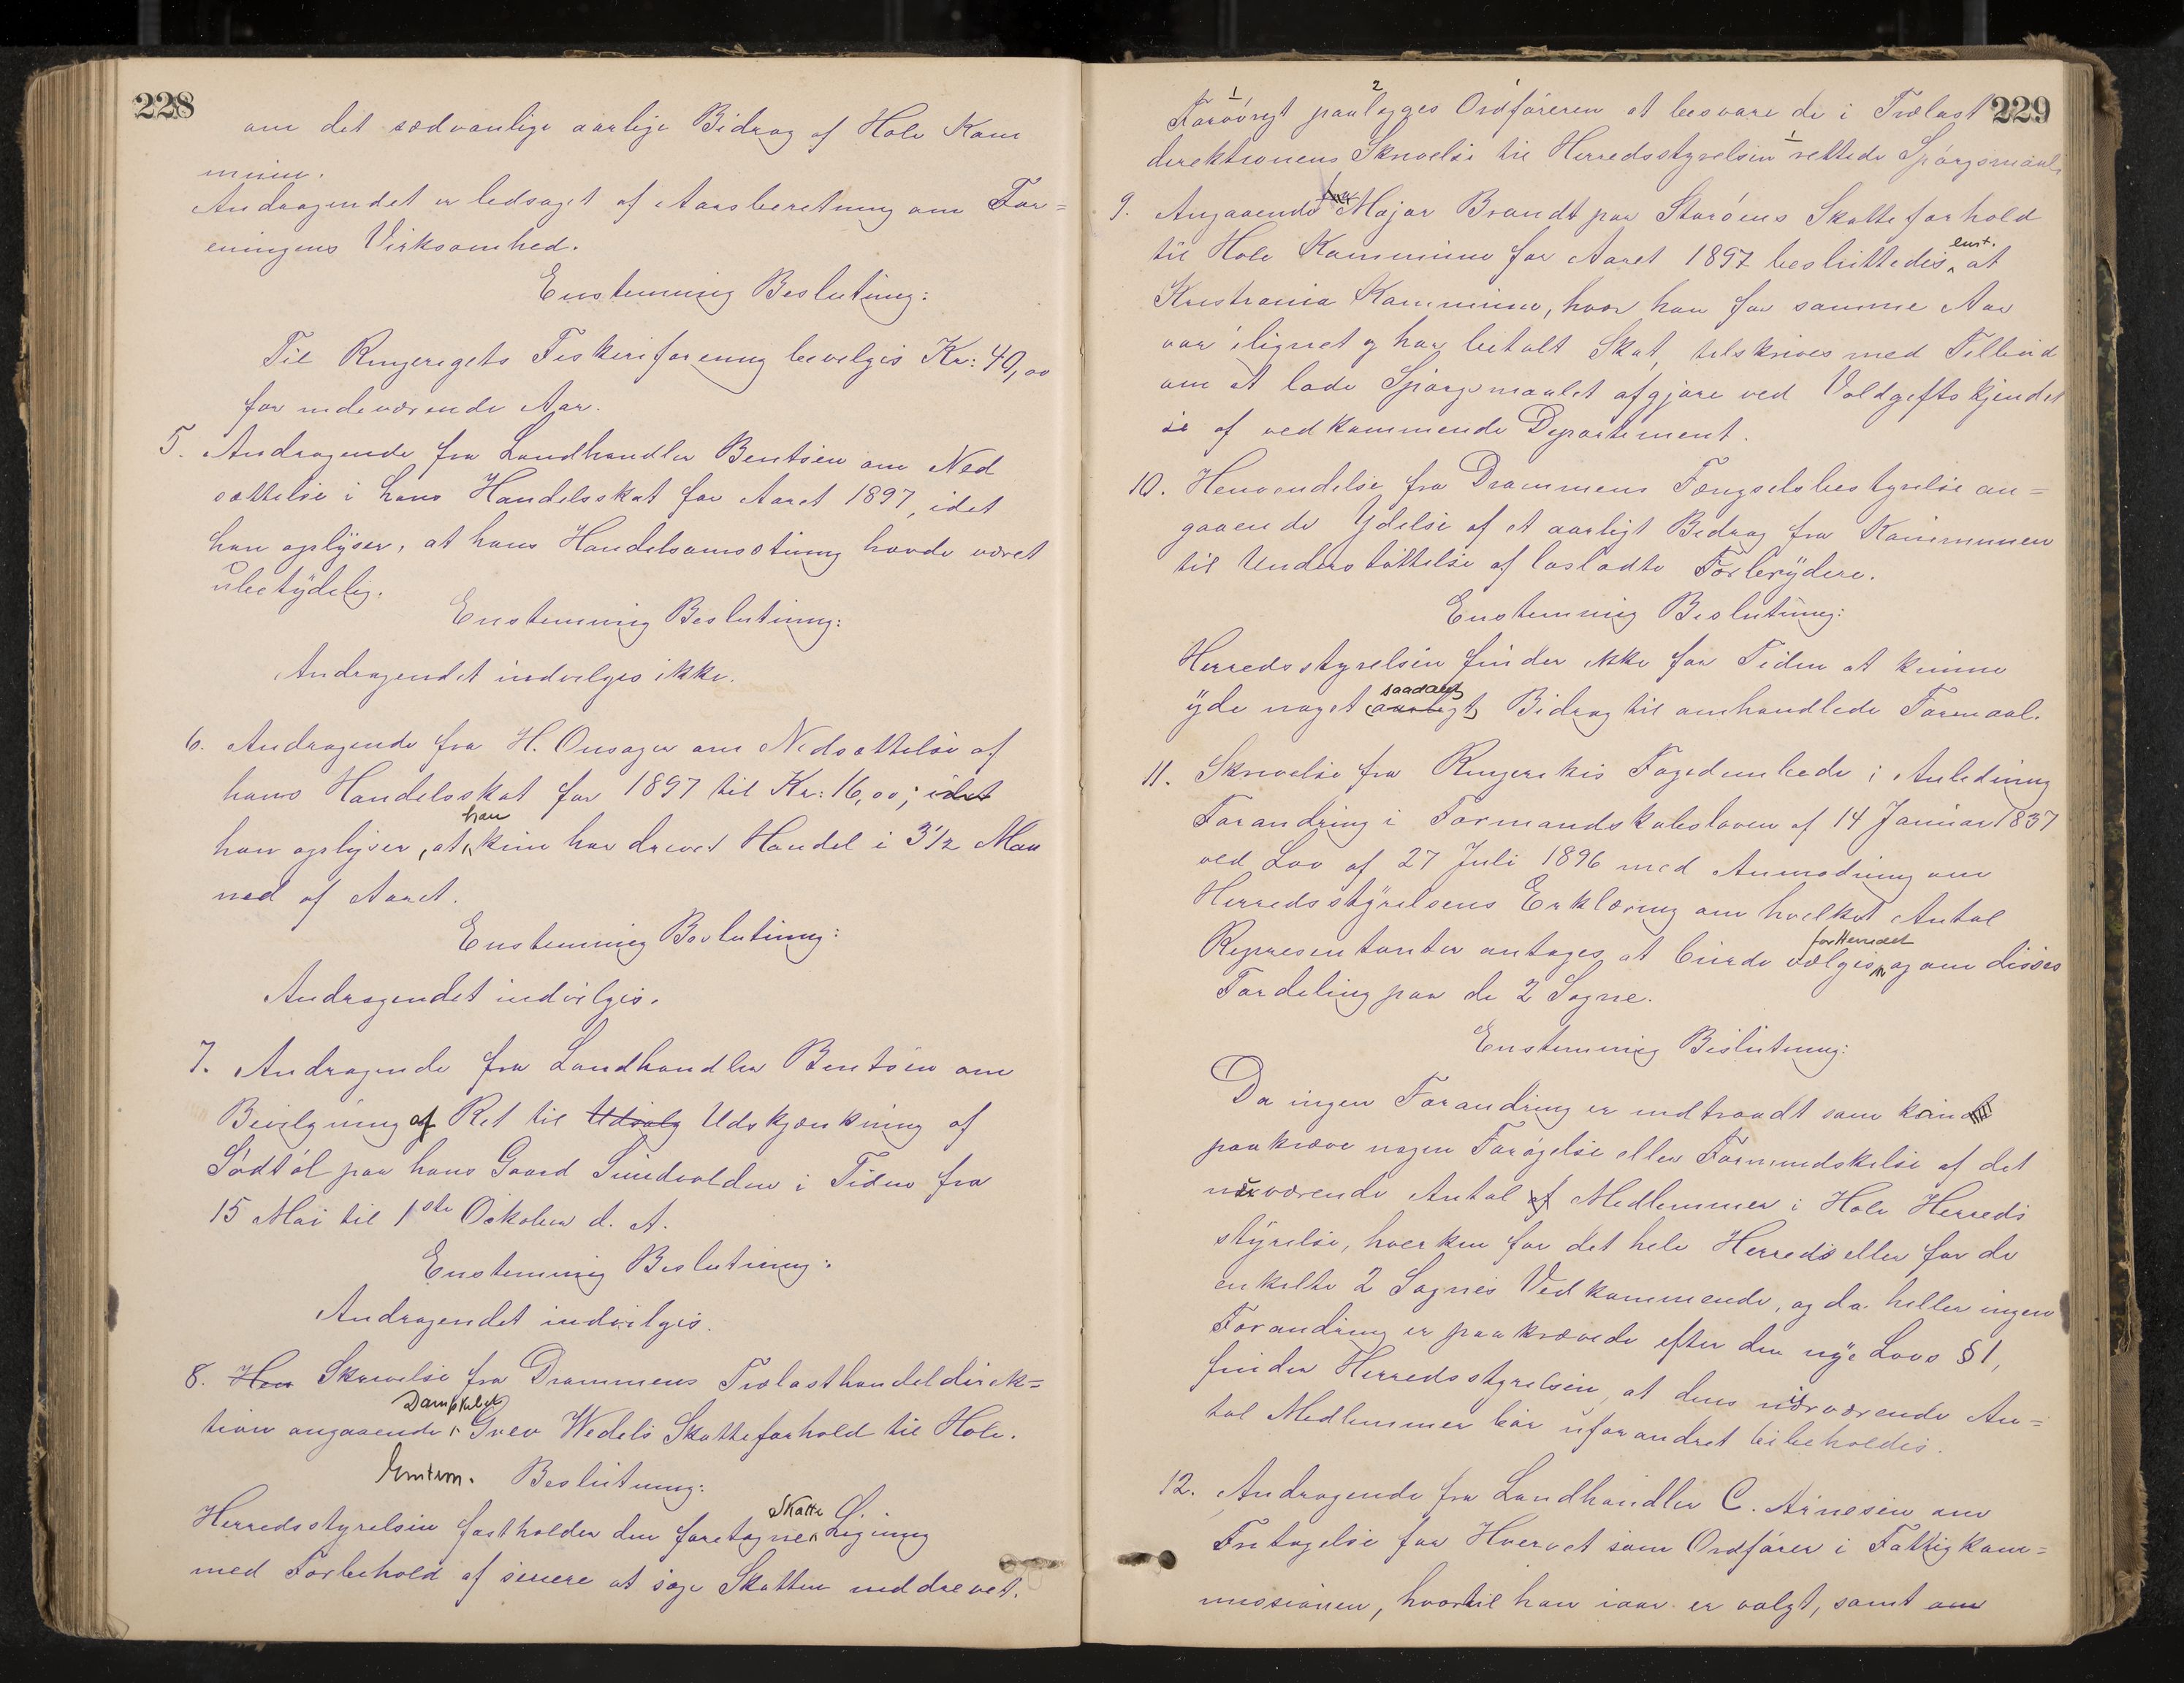 228
om det sædvanlige aarlige Bidrag af Hole Kom
mune.
Andragendet er ledsaget af Aarsberetning om For=
eningens Virksomhed.
Enstemmig Beslutning:
Til Ringerigets Fiskeriforening bevilges Kr: 40,00
for indeværende Aar.
5. Andragende fra Landhandler Bentsen om Ned
sættelse i hans Handelsskat for Aaret 1897, idet
han oplyser, at hans Handelsomsætning havde været
ubetydelig.
Enstemmig Beslutning:
Andragendet indvilges ikke.
6. Andragende fra H. Onsager om Nedsættelse af
hans Handelsskat for 1897 til Kr: 16,00; idet
han oplyser, at han kun har drevet Handel i 3 1/2 Maa
ned af Aaret.
Enstemmig Beslutning:
Andragendet indvilges.
7. Andragende fra Landhandler Bentsen om
Bevilgning af Ret til Udsalg Udskjænkning af
Sødtøl paa hans Gaard Sundvolden i Tiden fra
15 Mai til 1ste Oktober d. A.
Enstemmig Beslutning:
Andragendet indvilges.
8. Hen Skrivelse fra Drammens Trælasthandeldirek=
tion angaaende Dampskibet Grev Wedels Skatteforhold til Hole.
Enstem. Beslutning:
Herredsstyrelsen fastholder den foretagne Skatte Ligning
med Forbehold af senere at søge Skatten inddrevet.
229
Forøvrigt paalægges Ordføreren at besvare de i Trælast
direktionens Skrivelse til Herredsstyrelsen rettede Spørgsmaal.
9. Angaaende Major Brandt paa Storøens Skatteforhold
til Hole Kommune for Aaret 1897 besluttedes enst. at
Kristiania Kommune, hvor han for samme Aar
var ilignet og har betalt Skat, tilskrives med Tilbud
om at lade Spørgsmaalet afgjøre ved Voldgiftskjendel
se af vedkommende Departement.
10. Henvendelse fra Drammens Fængselsbestyrelse an=
gaaende Ydelse af et aarligt Bidrag fra Kommunen
til Understøttelse af løsladte Forbrydere.
Enstemmig Beslutning:
Herredsstyrelsen finder ikke for Tiden at kunne
yde noget (aarligt) saadant Bidrag til omhandlede Formaal.
11. Skrivelse fra Ringerikes Fogedembede i Anledning
Forandring i Formandskabsloven af 14 Januar 1837
ved Lov af 27 Juli 1896 med Anmodning om
Herredsstyrelsens Erklæring om hvilket Antal
Representanter antages at burde vælges for Herredet og om disses
Fordeling paa de 2 Sogne.
Enstemmig Beslutning:
Da ingen Forandring er indtraadt som kan
paakræve nogen Forøgelse eller Formindskelse af det
nuværende Antal af Medlemmer i Hole Herreds
styrelse, hverken for det hele Herreds eller for de
enkelte 2 Sognes Vedkommende, og da heller ingen
Forandring er paakrævede efter den nye Lovs § 1,
finder Herredsstyrelsen, at dens nuværende An=
tal Medlemmer bør uforandret bibeholdes.
12. Andragende fra Landhandler C. Arnesen om
Fritagelse for Hvervet som Ordfører i Fattigkom=
missionen, hvortil han iaar er valgt, samt om